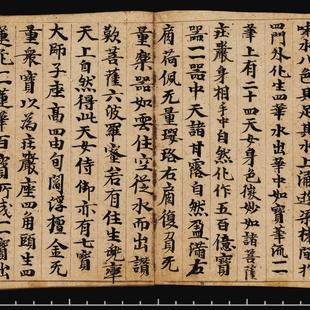 味水八色具足其水上涌游梁棟間於
四門外化生四華水出華中如寶華流一一
華上有二十四天女身色微妙如諸菩薩
莊嚴身相手中自然化作五億寶
器一一器中天諸甘露自然盈滿左
肩荷佩无量瓔珞右肩復負无
量樂器如雲住空從水而出讚
歎菩薩六波羅蜜若有往生兜率
天上自然得此天女侍御亦有七寶
大師子座高四由旬閻浮檀金无
量衆寶以為莊嚴座四角頭生四
蓮花一一蓮華百寶所成一一寶出